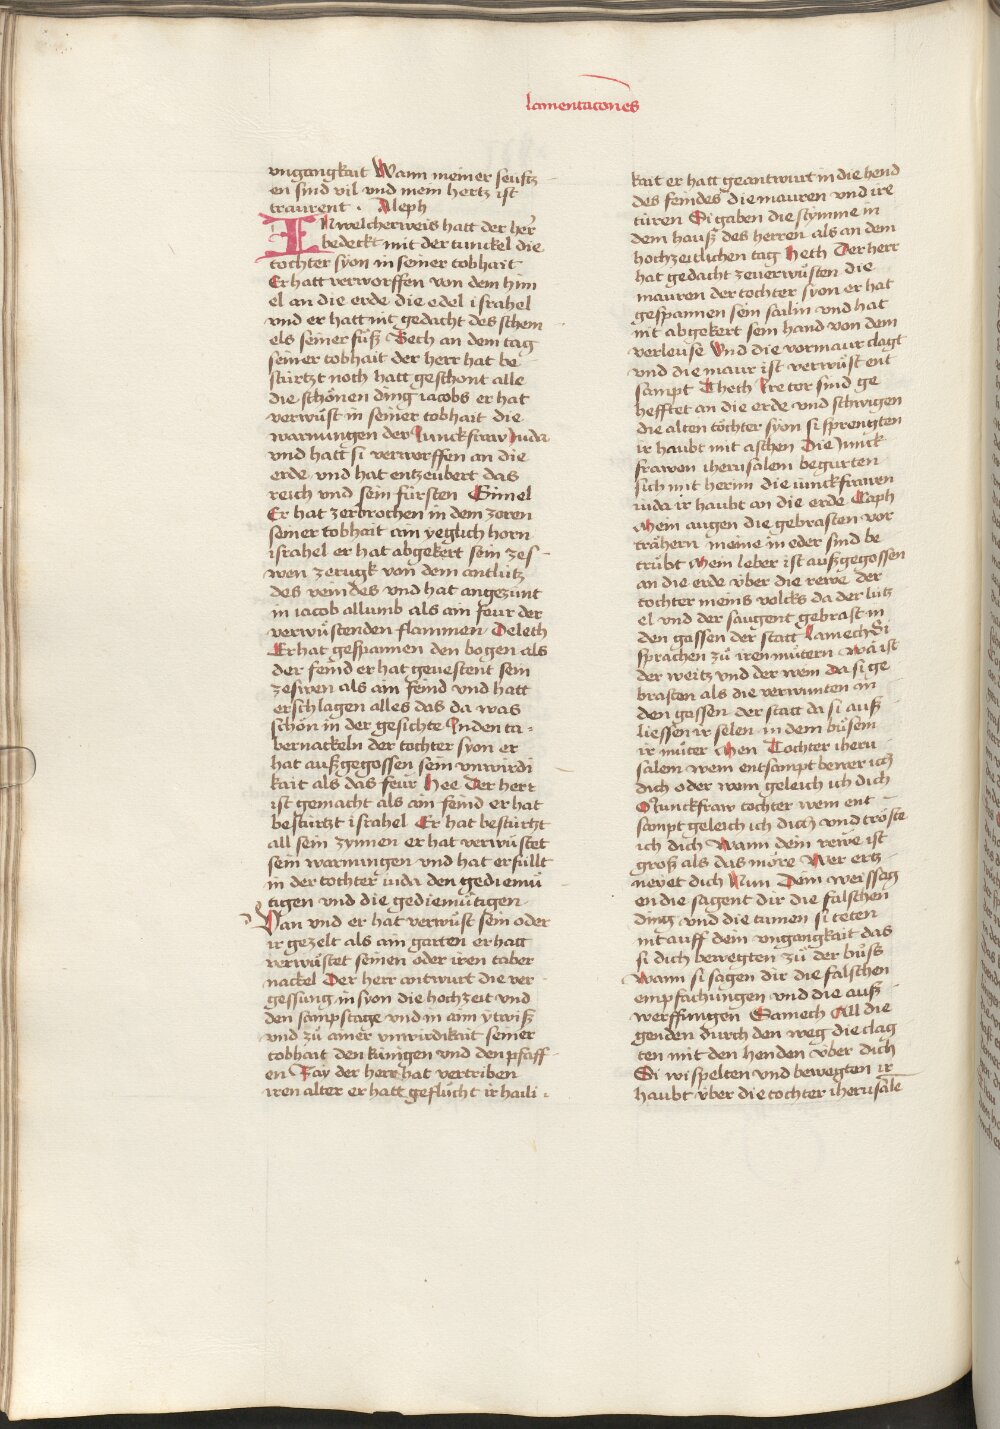 lamentacones
vngangkait Wann meiner seuftz
en sind vil vnd mein hertz ist
traurent . Aleph
IN welcherweis hatt der her
bedeckt mit der tunckel die
tochter syon in seiner tobhait
Er hatt verworffen von dem him
el an die erde die edel israhel
vnd er hatt nit gedacht des schem
els seiner fůß Bech an dem tag
seiner tobhait der herr hat be
stürtzt noch hatt geschont alle
die schönen ding iacobs er hat
verwůst in seiner tobhait die
warnungen der Junckfraw Juda
vnd hatt si verworffen an die
erde vnd hat entzeubert das
reich vnd sein fürsten Gimel
Er hat zerbrochen in dem zoren
seiner tobhait ain yeglich horn
israhel er hat abgekert sein zes
wen zerugk von dem antlütz
des veindes vnd hat angezunt
in iacob allumb als ain feur der
verwůstenden flammen Deleth
Er hat gespannen den bogen als
der feind er hat geuestent sein
zeswen als ain feind vnd hatt
erschlagen alles das da was
schön in der gesichte In den ta
bernackeln der tochter syon er
hat außgegossen sein vnwirdi
kait als das feur Hee Der herr
ist gemacht als ain feind er hat
bestürtzt israhel Er hat bestürtzt
all sein zynnen er hat verwůstet
sein warnungen vnd hat erfüllt
in der tochter iuda den gediemů
tigen vnd die gediemůtigen
Vau vnd er hat verwůst sein oder
ir gezelt als ain garten er hatt
verwůstet seinen oder iren taber
nackel Der herr antwurt die ver
gessung in syon die hochzeit vnd
den sampstage vnd in ainn ytwiß
vnd zů ainer vnwirdikait seiner
tobhait den künigen vnd den pfaff
en Zay der herr hat vertriben
iren alter er hatt geflůcht ir haili
kait er hatt geantwurt in die hend
des feindes die mauren vnd ire
türen Si gaben die stymme in
dem hauß des herren als an dem
hochzeitlichen tag Heth Der herr
hat gedacht zeuerwůsten die
mauren der tochter syon er hat
gespannen sein sailin vnd hat
nit abgekert sein hand von dem
verleuse Vnd die vormaur clagt
vnd die maur ist verwůst ent
sampt Theth Ire tor sind ge
hefftet an die erde vnd schwigen
die alten töchter syon si sprengten
ir haubt mit aschen Die Junck
frawen iherusalem begurten
sich mit herinn die iunckfrawen
iuda ir haubt an die erde Caph
Mein augen die gebrasten vor
trähern meine in eder sind be
trübt Mein leber ist außgegossen
an die erde vber die rewe der
tochter meins volcks da der lütz
el vnd der saugent gebrast in
den gassen der statt Lamech Si
sprachen zů iren můtern wa ist
der weitz vnd der wein Da si ge
brasten als die verwunten in
den gassen der statt da si auß
liessen ir selen in dem bůsem
ir můter Men Tochter iheru
salem wem entsampt bewer ich
dich oder wem geleich ich dich
O Junckfraw tochter wem ent
sampt geleich ich dich vnd tröste
ich dich Wann dein rewe ist
groß als das möre Wer ertz
neyet dich Nun Dein weissag
en die sagent dir die falschen
ding vnd die tumen si teten
nit auff dein vngangkait das
si dich bewegten zů der bůß
Wann si sagen dir die falschen
empfachungen vnd die auß
werffungen Samech All die
genden durch den weg die clag
ten mit den henden vber dich
Si wispelten vnd bewegten ir
haubt vber die tochter iherusale